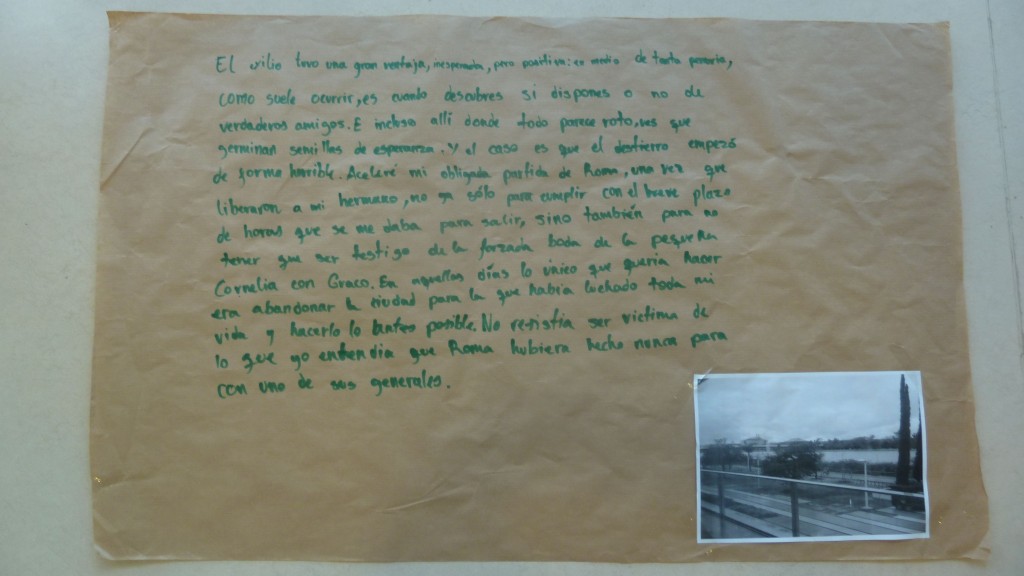 El exilio tuvo una gran ventaja, inesperada, pero positiva: en medio de tanta penuria,
como suele ocurrir, es cuando descubres si dispones o no de
verdaderos amigos. E incluso allí donde todo parece roto, ves que
germinan semillas de esperanza. Y el caso es que el destierro empezó
de forma horrible. Aceleré mi obligada partida de Roma, una vez que
liberaron a mi hermano, no ya sólo para cumplir con el breve plazo
de horas que se me daba para salir, sino también para no
tener que ser testigo de la forzada boda de la pequeña
Cornelia con Graco. En aquellos días lo único que quería hacer
era abandonar la ciudad para la que había luchado toda mi
vida y hacerlo lo antes posible. No resistía ser víctima de
lo que yo entendía que Roma hubiera hecho nunca para
con uno de sus generales.